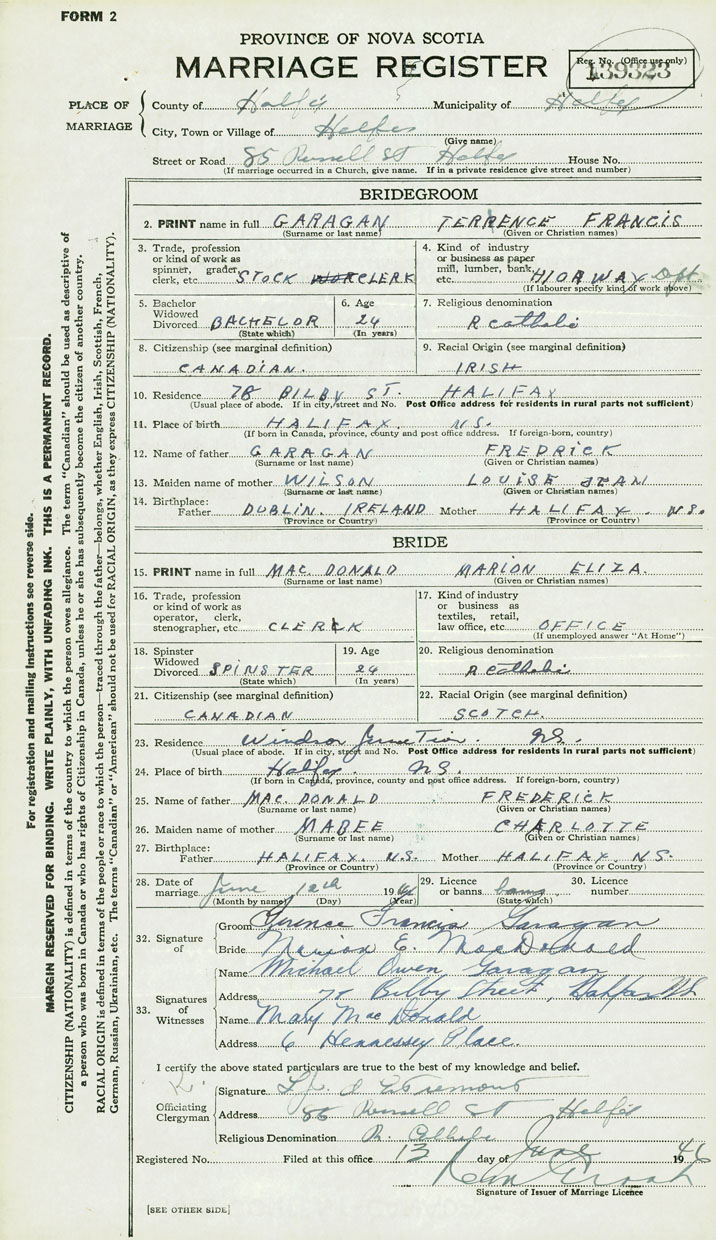 FORM 2
PROVINCE OF NOVA SCOTIA
MARRIAGE REGISTER
Reg. No. (Office use only)
139323
PLACE OF MARRIAGE
County of Halifax Municipality of Halifax
City, Town or Village of Halifax
(Give name)
Street or Road 85 Russell St Halifax House No.
(If marriage occurred in a Church, give name. If in a private residence give street and number)
BRIDEGROOM
2. PRINT name in full GARAGAN TERRENCE FRANCIS
(Surname or last name) (Given or Christian names)
3. Trade, profession or kind of work as spinner, grader, clerk, etc. STOCK CLERK
4. Kind of industry or business as paper mill, lumber, bank, etc. HIGHWAY Dpt
(If labourer specify kind of work above)
5. Bachelor Widowed Divorced BACHELOR
(State which)
6. Age 24
(In years)
7. Religious denomination R Catholic
8. Citizenship (see marginal definition) CANADIAN.
9. Racial Origin (see marginal definition) IRISH
10. Residence 78 BILBY ST. HALIFAX
(Usual place of abode. If in city, street and No. Post Office address for residents in rural parts not sufficient)
11. Place of birth HALIFAX. N.S.
(If born in Canada, province, county and post office address. If foreign-born, country)
12. Name of father GARAGAN FREDRICK
(Surname or last name) (Given or Christian names)
13. Maiden name of mother WILSON LOUISE JEAN
(Surname or last name) (Given or Christian names)
14. Birthplace: Father DUBLIN. IRELAND Mother HALIFAX. N.S.
(Province or Country) (Province or Country)
BRIDE
15. PRINT name in full MAC. DONALD MARION ELIZA.
(Surname or last name) (Given or Christian names)
16. Trade, profession or kind of work as operator, clerk, stenographer, etc. CLERK
17. Kind of industry or business as textiles, retail, law office, etc. OFFICE
(If unemployed answer "At Home")
18. Spinster Widowed Divorced SPINSTER
(State which)
19. Age 24
(In years)
20. Religious denomination R Catholic
21. Citizenship (see marginal definition) CANADIAN
22. Racial Origin (see marginal definition) SCOTCH.
23. Residence Windsor Junction. N.S.
(Usual place of abode. If in city, street and No. Post Office address for residents in rural parts not sufficient)
24. Place of birth Halifax. N.S.
(If born in Canada, province, county and post office address. If foreign-born, country)
25. Name of father MAC. DONALD FREDERICK
(Surname or last name) (Given or Christian names)
26. Maiden name of mother MABEE CHARLOTTE
(Surname or last name) (Given or Christian names)
27. Birthplace: Father HALIFAX. N.S. Mother HALIFAX. N.S.
(Province or Country) (Province or Country)
28. Date of marriage June 12th 1946
(Month by name) (Day) (Year)
29. Licence or banns banns
(State which)
30. Licence number
32. Signature of
Groom Francis Garagan
Bride Marion E. MacDonald
33. Signatures of Witnesses
Name Michael Owen Garagan
Address Bilby Street, Halifax NS
Name Mary Mac Donald
Address 6 Hennessey Place.
I certify the above stated particulars are true to the best of my knowledge and belief.
Officiating Clergyman
Signature
Address 85 Russell St Halifax
Religious Denomination R. Catholic
Registered No. Filed at this office 13 day of June 1946
Signature of Issuer of Marriage Licence
[SEE OTHER SIDE]
For registration and mailing instructions see reverse side.
MARGIN RESERVED FOR BINDING. WRITE PLAINLY, WITH UNFADING INK. THIS IS A PERMANENT RECORD.
CITIZENSHIP (NATIONALITY) is defined in terms of the country to which the person owes allegiance. The term "Canadian" should be used as descriptive of
a person who was born in Canada or who has rights of Citizenship in Canada, unless he or she has subsequently become the citizen of another country.
RACIAL ORIGIN is defined in terms of the people or race to which the person—traced through the father—belongs, whether English, Irish, Scottish, French,
German, Russian, Ukrainian, etc. The terms "Canadian" or "American" should not be used for RACIAL ORIGIN, as they express CITIZENSHIP (NATIONALITY).